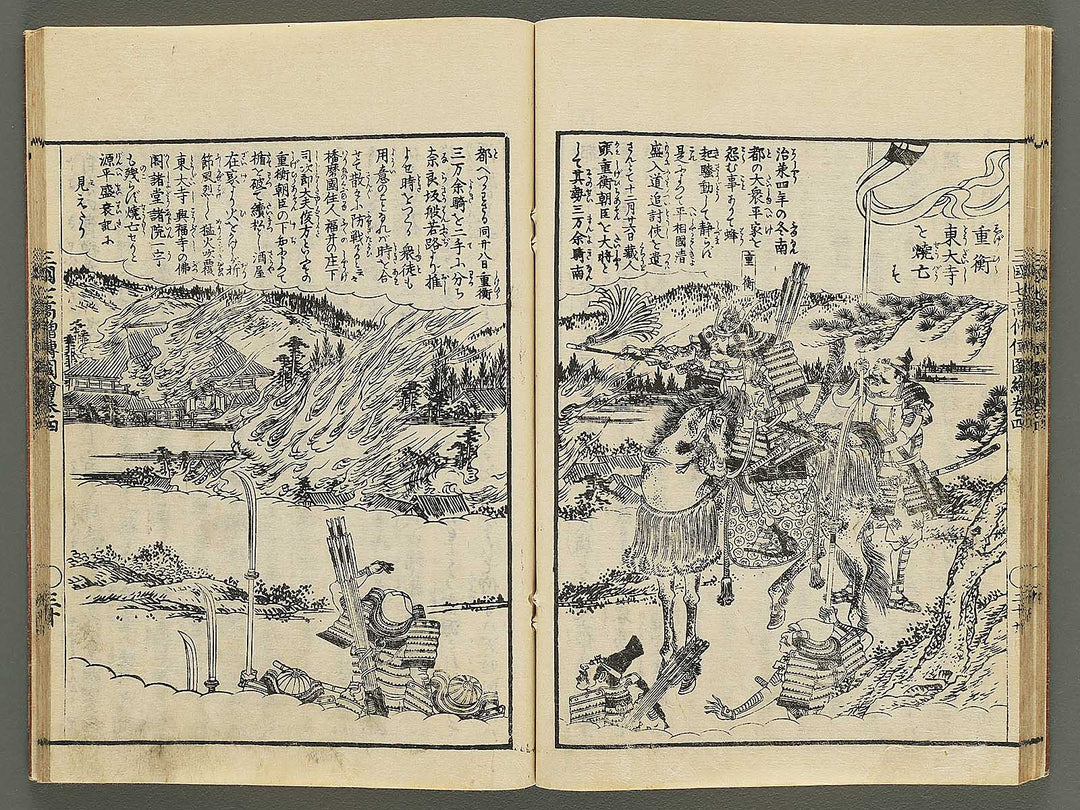 重衡
東大寺
を焼亡
す
治承四年の冬南
都の大衆平家を
怨む事ありて蜂
起騒動して静らん
是によつて平相國清
盛入道追討使を遣
さんとて十二月廿六日蔵人
頭重衡朝臣を大将と
して其勢三万余騎南
重衡
都へつかはさる同廿八日重衡
三万余騎を二手に分ち
奈良坂般若路より推
よせ時をつくる衆徒も
用意のことなれば時を合
せて散々に防戦ふ
播磨國住人福井の庄下
司次郎大夫俊方といふもの
重衡朝臣の下知によつて
楯を破り續松とし酒屋
在家より火をかけしが折
節風烈しく猛火吹覆
東大寺興福寺の佛
閣諸堂諸院一宇
も残らず焼亡せりと
源平盛衰記に
見えたり